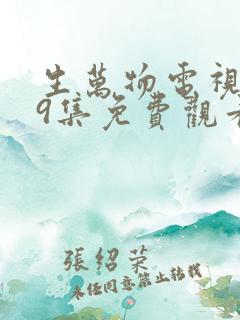 生萬物電視
9集免費觀看
張紹榮
未經同意禁止轉載